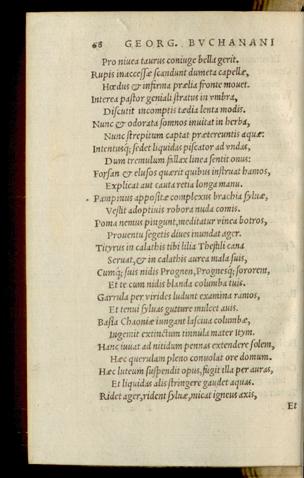 68 GEORG. BVCHANANI
Pro niuea taurus coniuge bella gerit.
Rupis inaccessæ scandunt dumeta capellæ,
Hœdus & infirma prælia fronte mouet.
Interea pastor geniali stratus in vmbra,
Discutit incomptis tædia lenta modis.
Nunc & odorata somnos inuitat in herba,
Nunc strepitum captat prætereuntis aquæ:
Intentusq; sedet liquidas piscator ad vndas,
Dum tremulum fallax linea sentit onus:
Forsan & elusos quærit quibus instruat hamos,
Explicat aut cauta retia longa manu.
Pampinus appositæ complexus brachia syluæ,
Vestit adoptiuis robora nuda comis.
Poma nemus pingunt, meditatur vinea botros,
Prouentu segetis diues inundat ager.
Tityrus in calathis tibi lilia Thestili cana
Seruat, & in calathis aurea mala suis,
Cumq; suis nidis Prognen, Prognesq; sororem,
Et te cum nidis blanda columba tuis.
Garrula per virides ludunt examina ramos,
Et tenui syluas gutture mulcet auis.
Basia Chaoniæ iungant lasciua columbæ,
Ingemit extinctum tinnula mater Ityn.
Hanc iuuat ad nitidum pennas extendere solem,
Hæc querulam pleno conuolat ore domum.
Hæc luteum suspendit opus, fugit illa per auras,
Et liquidas alis stringere gaudet aquas.
Ridet ager, rident syluæ, micat igneus axis,
Et